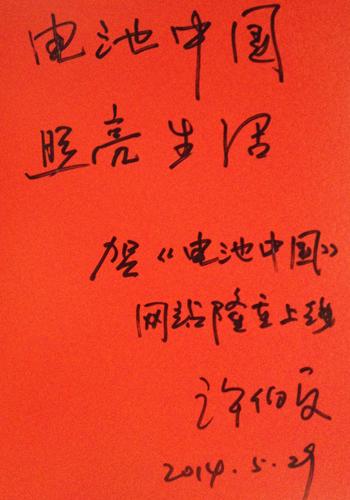 电池中国
照亮生活
贺《电池中国》
网站隆重上线
许伯
2014.5.29